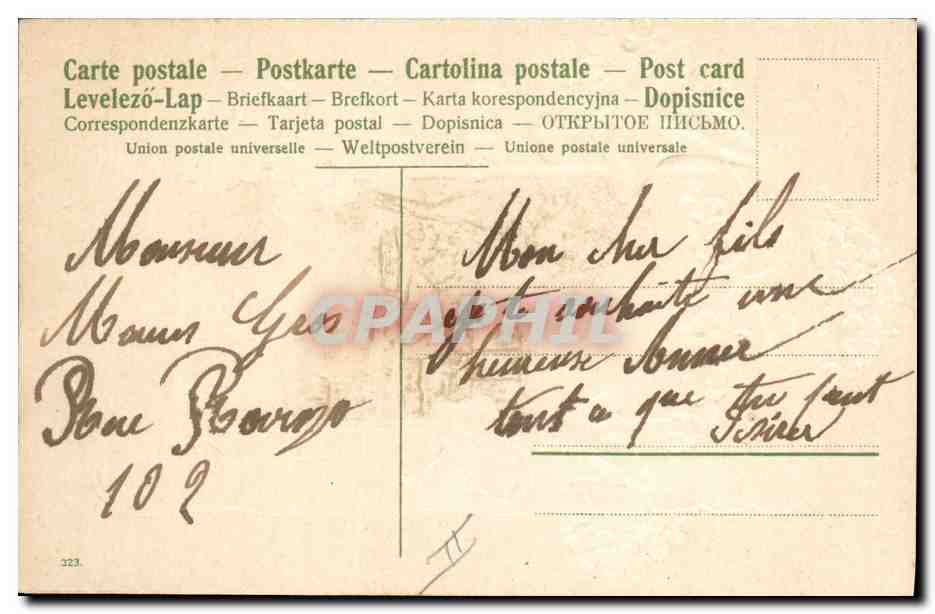 Carte postale — Postkarte — Cartolina postale — Post card
Levelező-Lap — Briefkaart — Brefkort — Karta korespondencyjna — Dopisnice
Correspondenzkarte — Tarjeta postal — Dopisnica — ОТКРЫТОЕ ПИСЬМО.
Union postale universelle — Weltpostverein — Unione postale universale
Monsieur
Gros
Rue
102
Mon cher fils
je te souhaite une
heureuse Année
tout a que tu peut
Désirer
CPAPHIL
323.
II